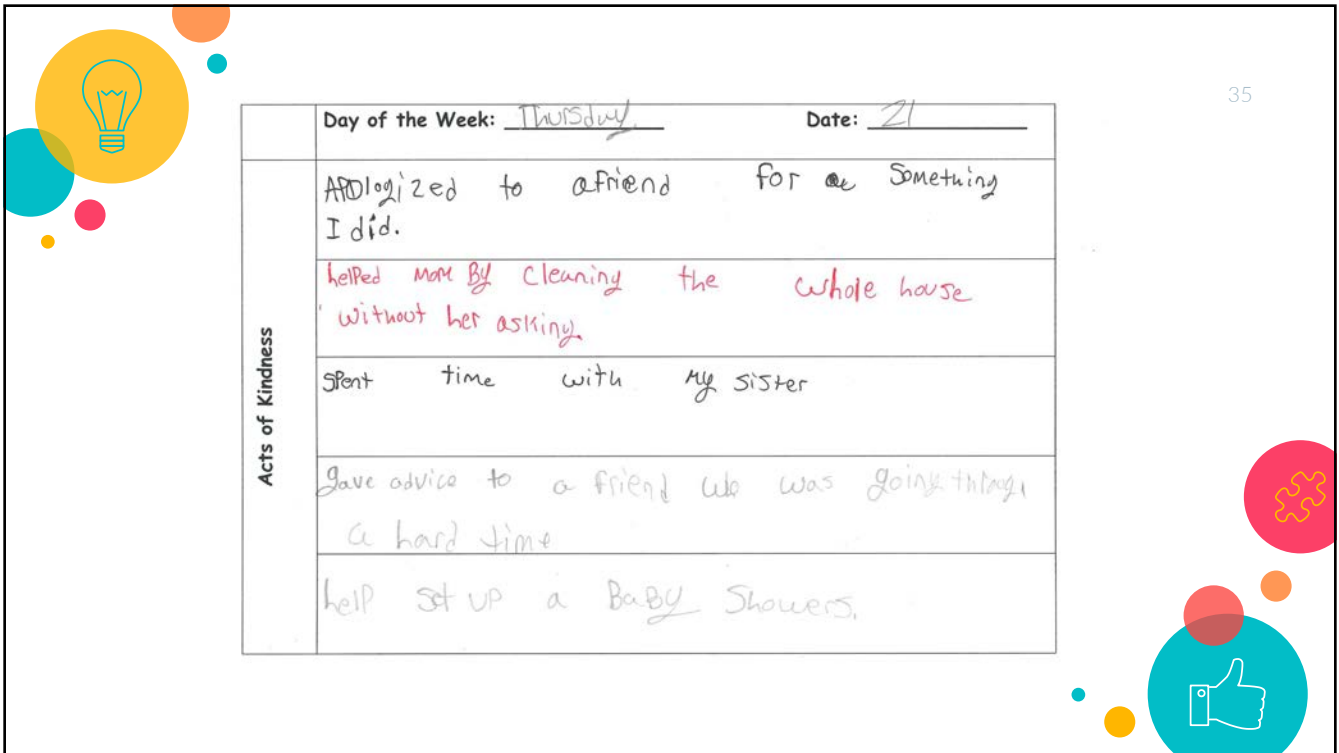 35
Day of the Week: Thursday Date: 21
Acts of Kindness
APOlogized to afriend for a Something
I did.
helped MOM By Cleaning the whole house
without her asking.
spent time with My sister
gave advice to a friend was going
a hard time
help set up a BaBy Showers.